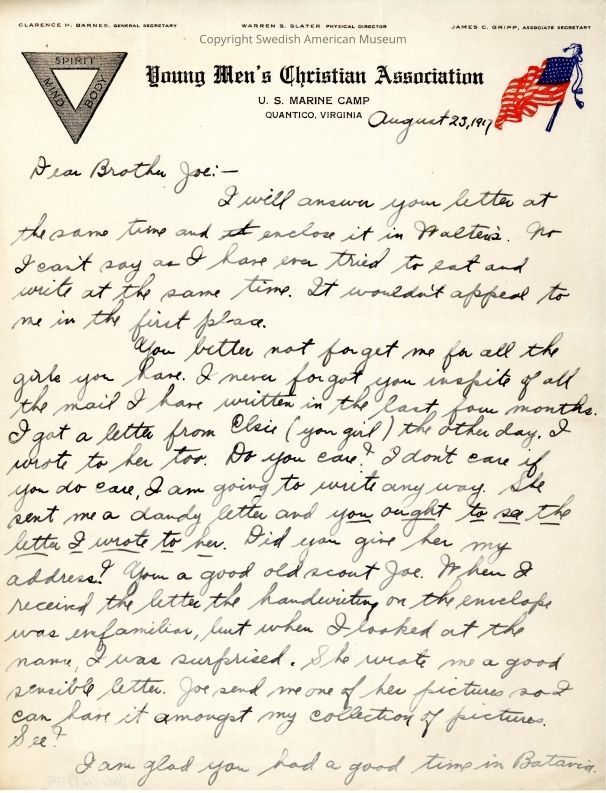 CLARENCE H. BARNES, GENERAL SECRETARY
WARREN S. SLATER PHYSICAL DIRECTOR
JAMES C. GRIPP, ASSOCIATE SECRETARY
Copyright Swedish American Museum
SPIRIT
MIND
BODY
Young Men's Christian Association
U. S. MARINE CAMP
QUANTICO, VIRGINIA
August 23, 1917
Dear Brother Joe:—
I will answer your letter at
the same time and enclose it in Walter's. No
I can't say as I have ever tried to eat and
write at the same time. It wouldn't appeal to
me in the first place.
You better not forget me for all the
girls you have. I never forgot you inspite of all
the mail I have written in the last four months.
I got a letter from Elsie (you girl) the other day. I
wrote to her too. Do you care? I don't care if
you do care, I am going to write any way. She
sent me a dandy letter and you ought to see the
letter I wrote to her. Did you give her my
address? Your a good old scout Joe. When I
received the letter the handwriting on the envelope
was unfamiliar, but when I looked at the
name, I was surprised. She wrote me a good
sensible letter. Joe send me one of her pictures so I
can have it amongst my collection of pictures.
See?
I am glad you had a good time in Batavia.